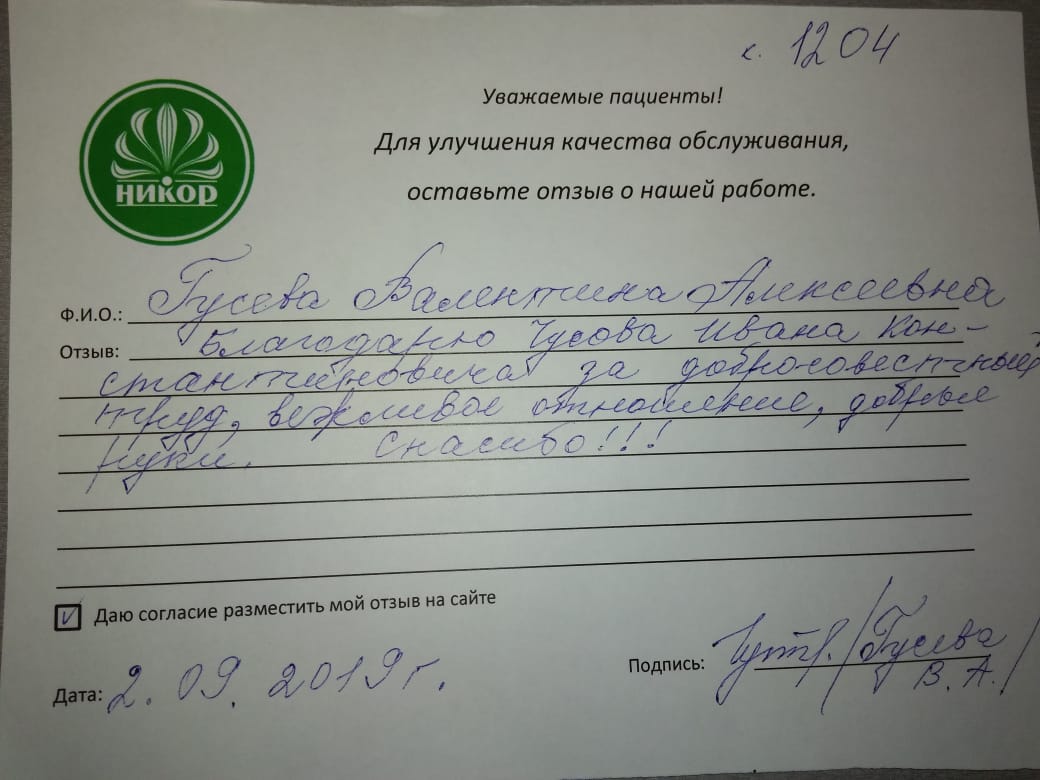 к. 1204
Уважаемые пациенты!
Для улучшения качества обслуживания,
оставьте отзыв о нашей работе.
НИКОР
Ф.И.О.: Гусева Валентина Алексеевна
Отзыв: Благодарю Чусова Ивана Кон-
стантиновича за добросовестный
труд, вежливое отношение, добрые
руки. Спасибо!!!
Даю согласие разместить мой отзыв на сайте
Дата: 2. 09. 2019 г.
Подпись: /Гусева
В. А./